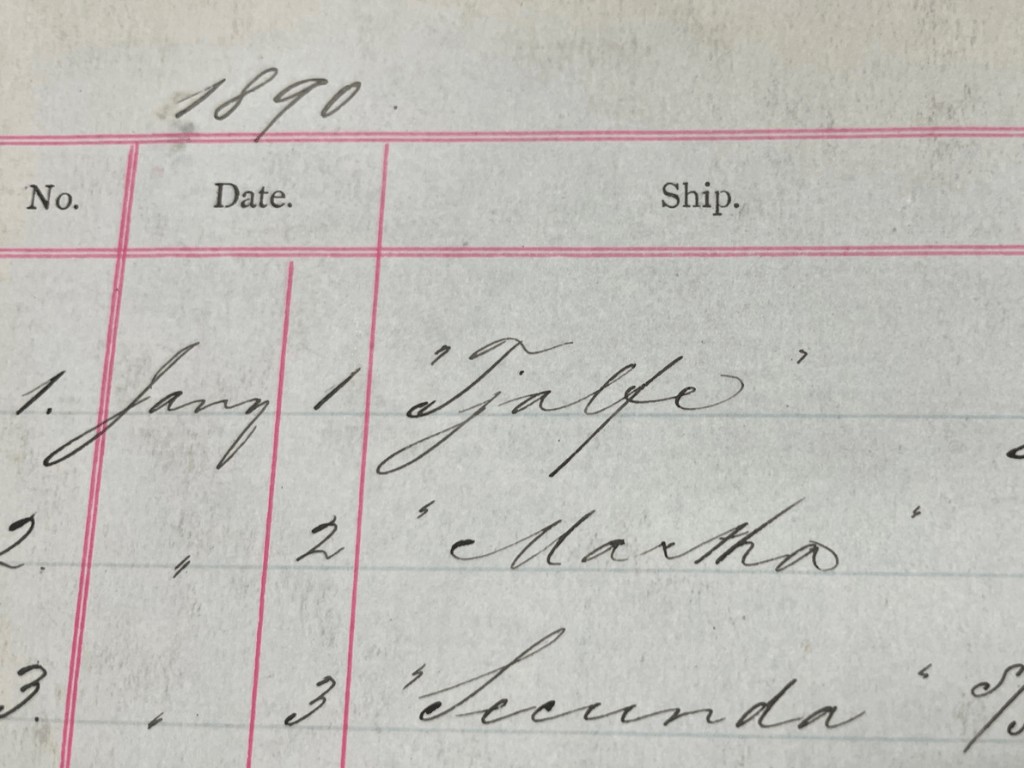 1890.
No. Date. Ship.
1. Jany 1 "Tjalfe"
2. " 2 "Martha"
3. " 3 "Secunda" S/S